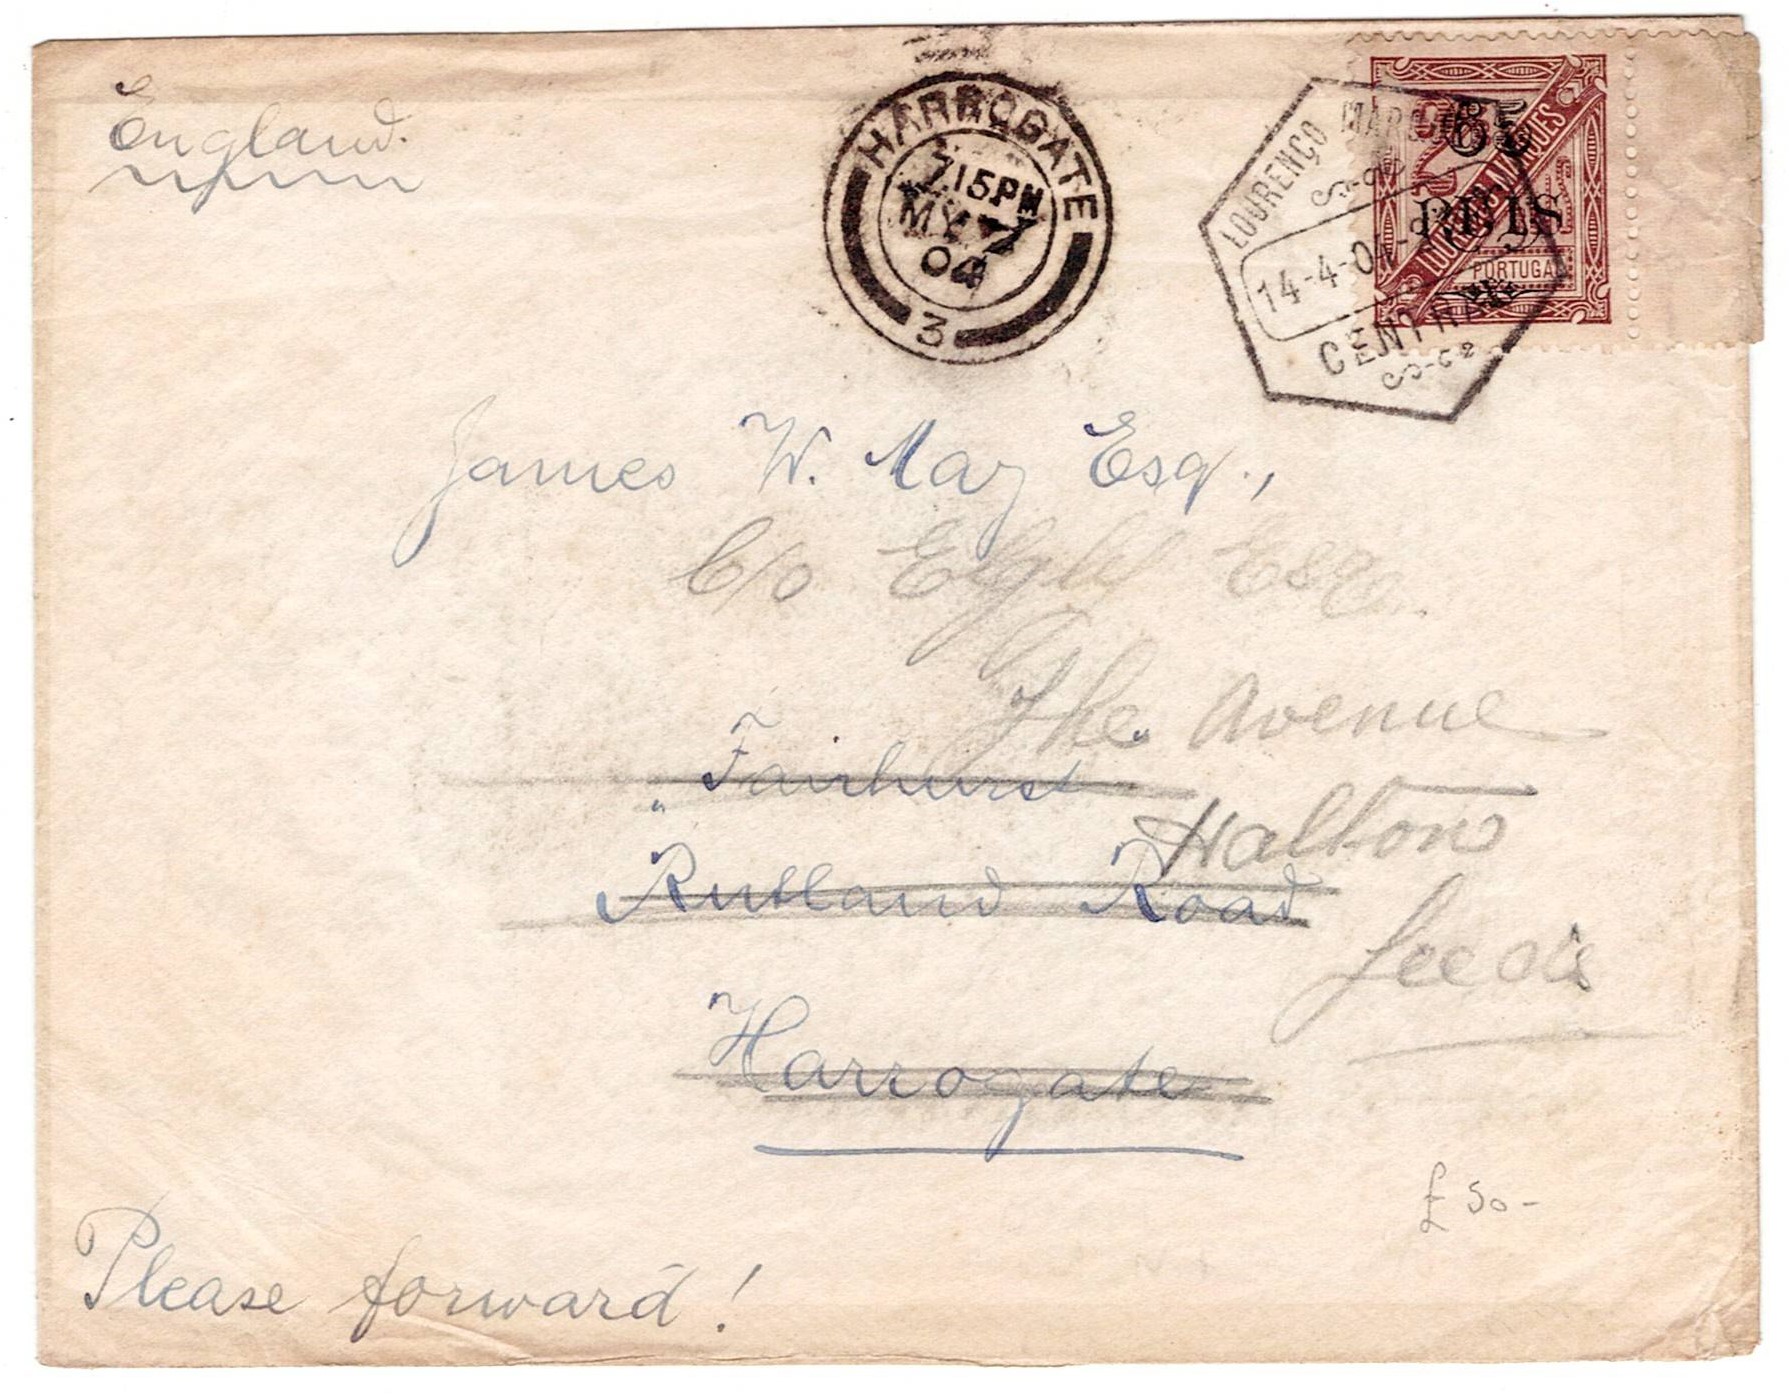 England.
HARROGATE
7.15PM
MY 7
04
3
LOURENÇO MARQUES
14-4-04
CENTRAL
65
REIS
LOURENÇO MARQUES
PORTUGAL
James W. May Esq.,
C/o Esq.
The Avenue
"Fairhurst"
Halton
Rutland Road
Leeds
Harrogate
£50-
Please forward!